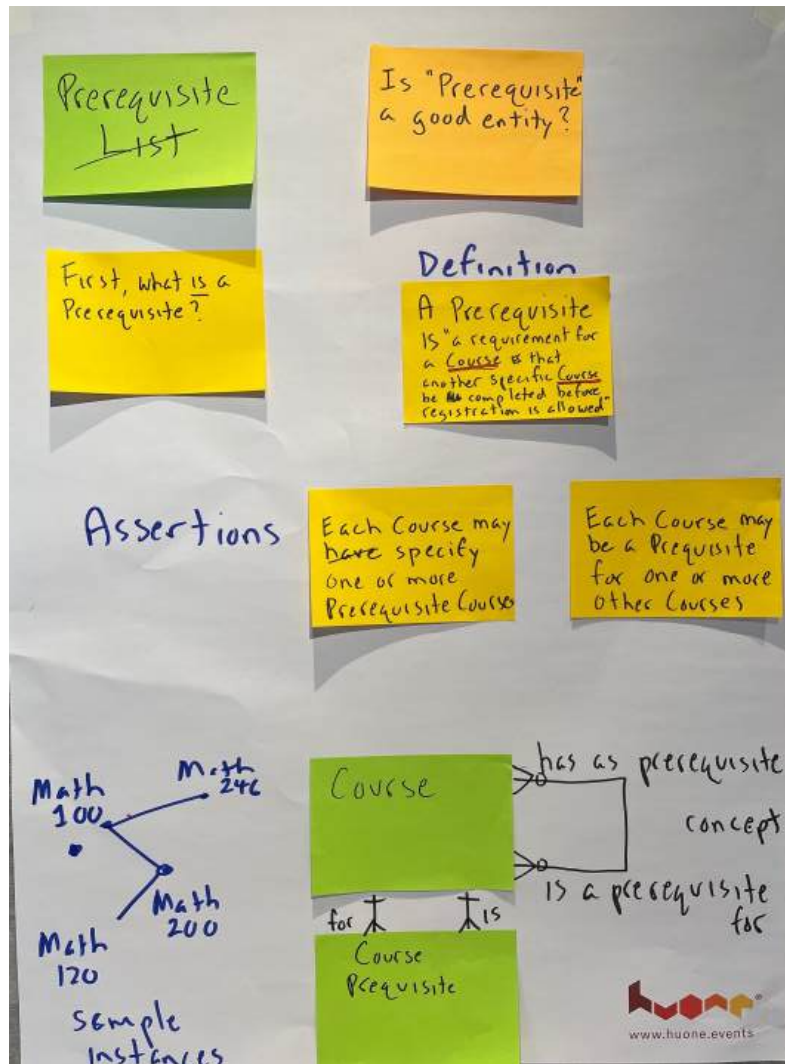 Prerequisite
List
Is "Prerequisite"
a good entity?
First, what is a
Prerequisite?
Definition
A Prerequisite
is "a requirement for
a Course that
another specific Course
be completed before
registration is allowed"
Assertions
Each Course may
have specify
one or more
Prerequisite Courses
Each Course may
be a Prequisite
for one or more
other Courses
Math
100
Math
246
Math
200
Math
120
sample
instances
Course
has as prerequisite
concept
is a prerequisite
for
for
is
Course
Preequisite
huone
www.huone.events